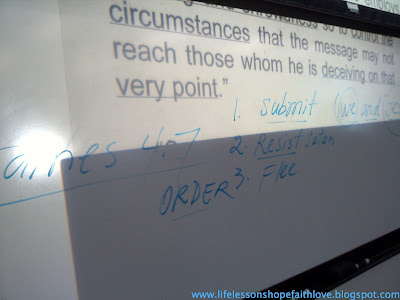 employs
circumstances that the message may not
reach those whom he is deceiving on that
very point.”
1. Submit (we and
James 4:7
2. Resist Satan
ORDER 3. Flee
www.lifelessonshopefaithlove.blogspot.com